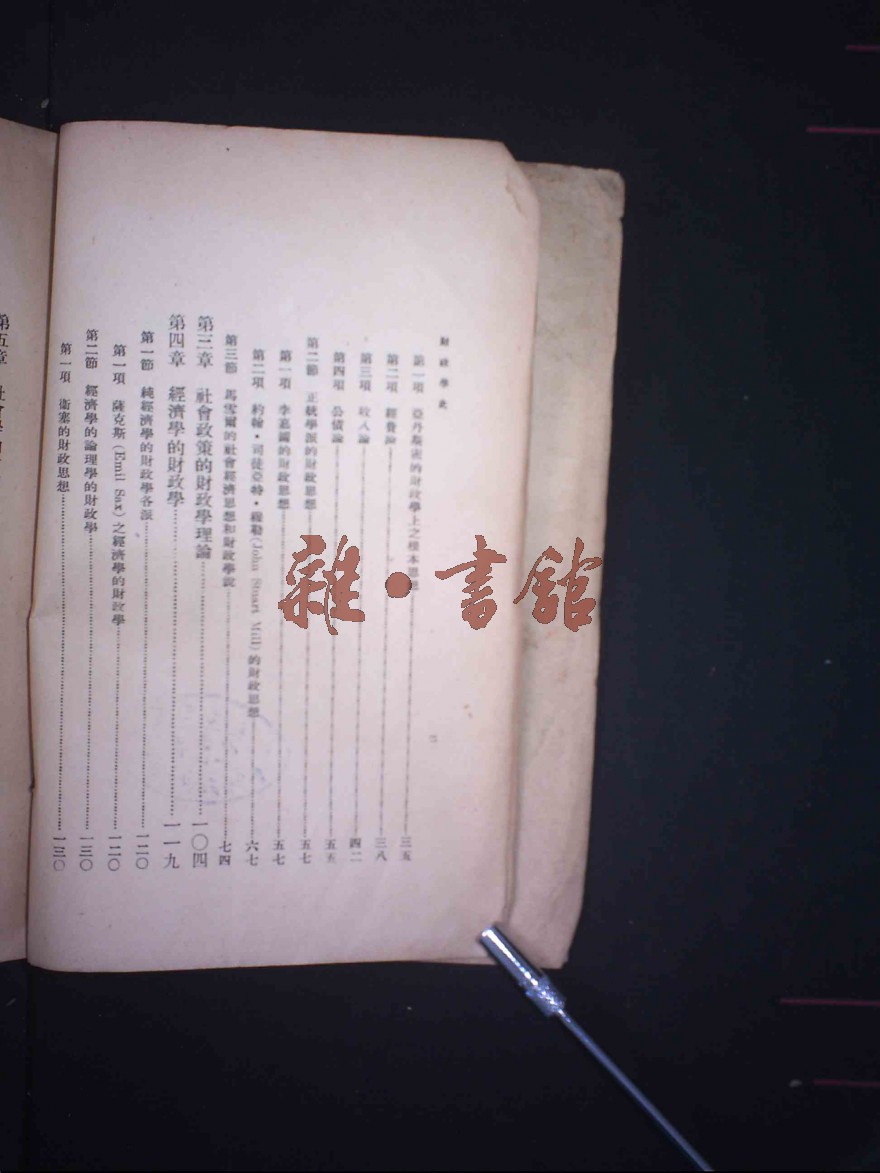 財政學史
第一項 亞丹斯密的財政學上之根本思想 三五
第二項 經費論 三八
第三項 收入論 四二
第四項 公債論 五五
第二節 正統學派的財政思想 五七
第一項 李嘉圖的財政思想 五七
第二項 約翰·司徒亞特·穆勒(John Stuart Mill)的財政思想 六七
第三節 馬雪爾的社會經濟思想和財政學說 七四
第三章 社會政策的財政學理論 一〇四
第四章 經濟學的財政學 一一九
第一節 純經濟學的財政學各派 一二〇
第一項 薩克斯(Emil Sax)之經濟學的財政學 一二〇
第二節 經濟學的論理學的財政學 一三〇
第一項 衛塞的財政思想 一三〇
第五章 社會學
雜·書館